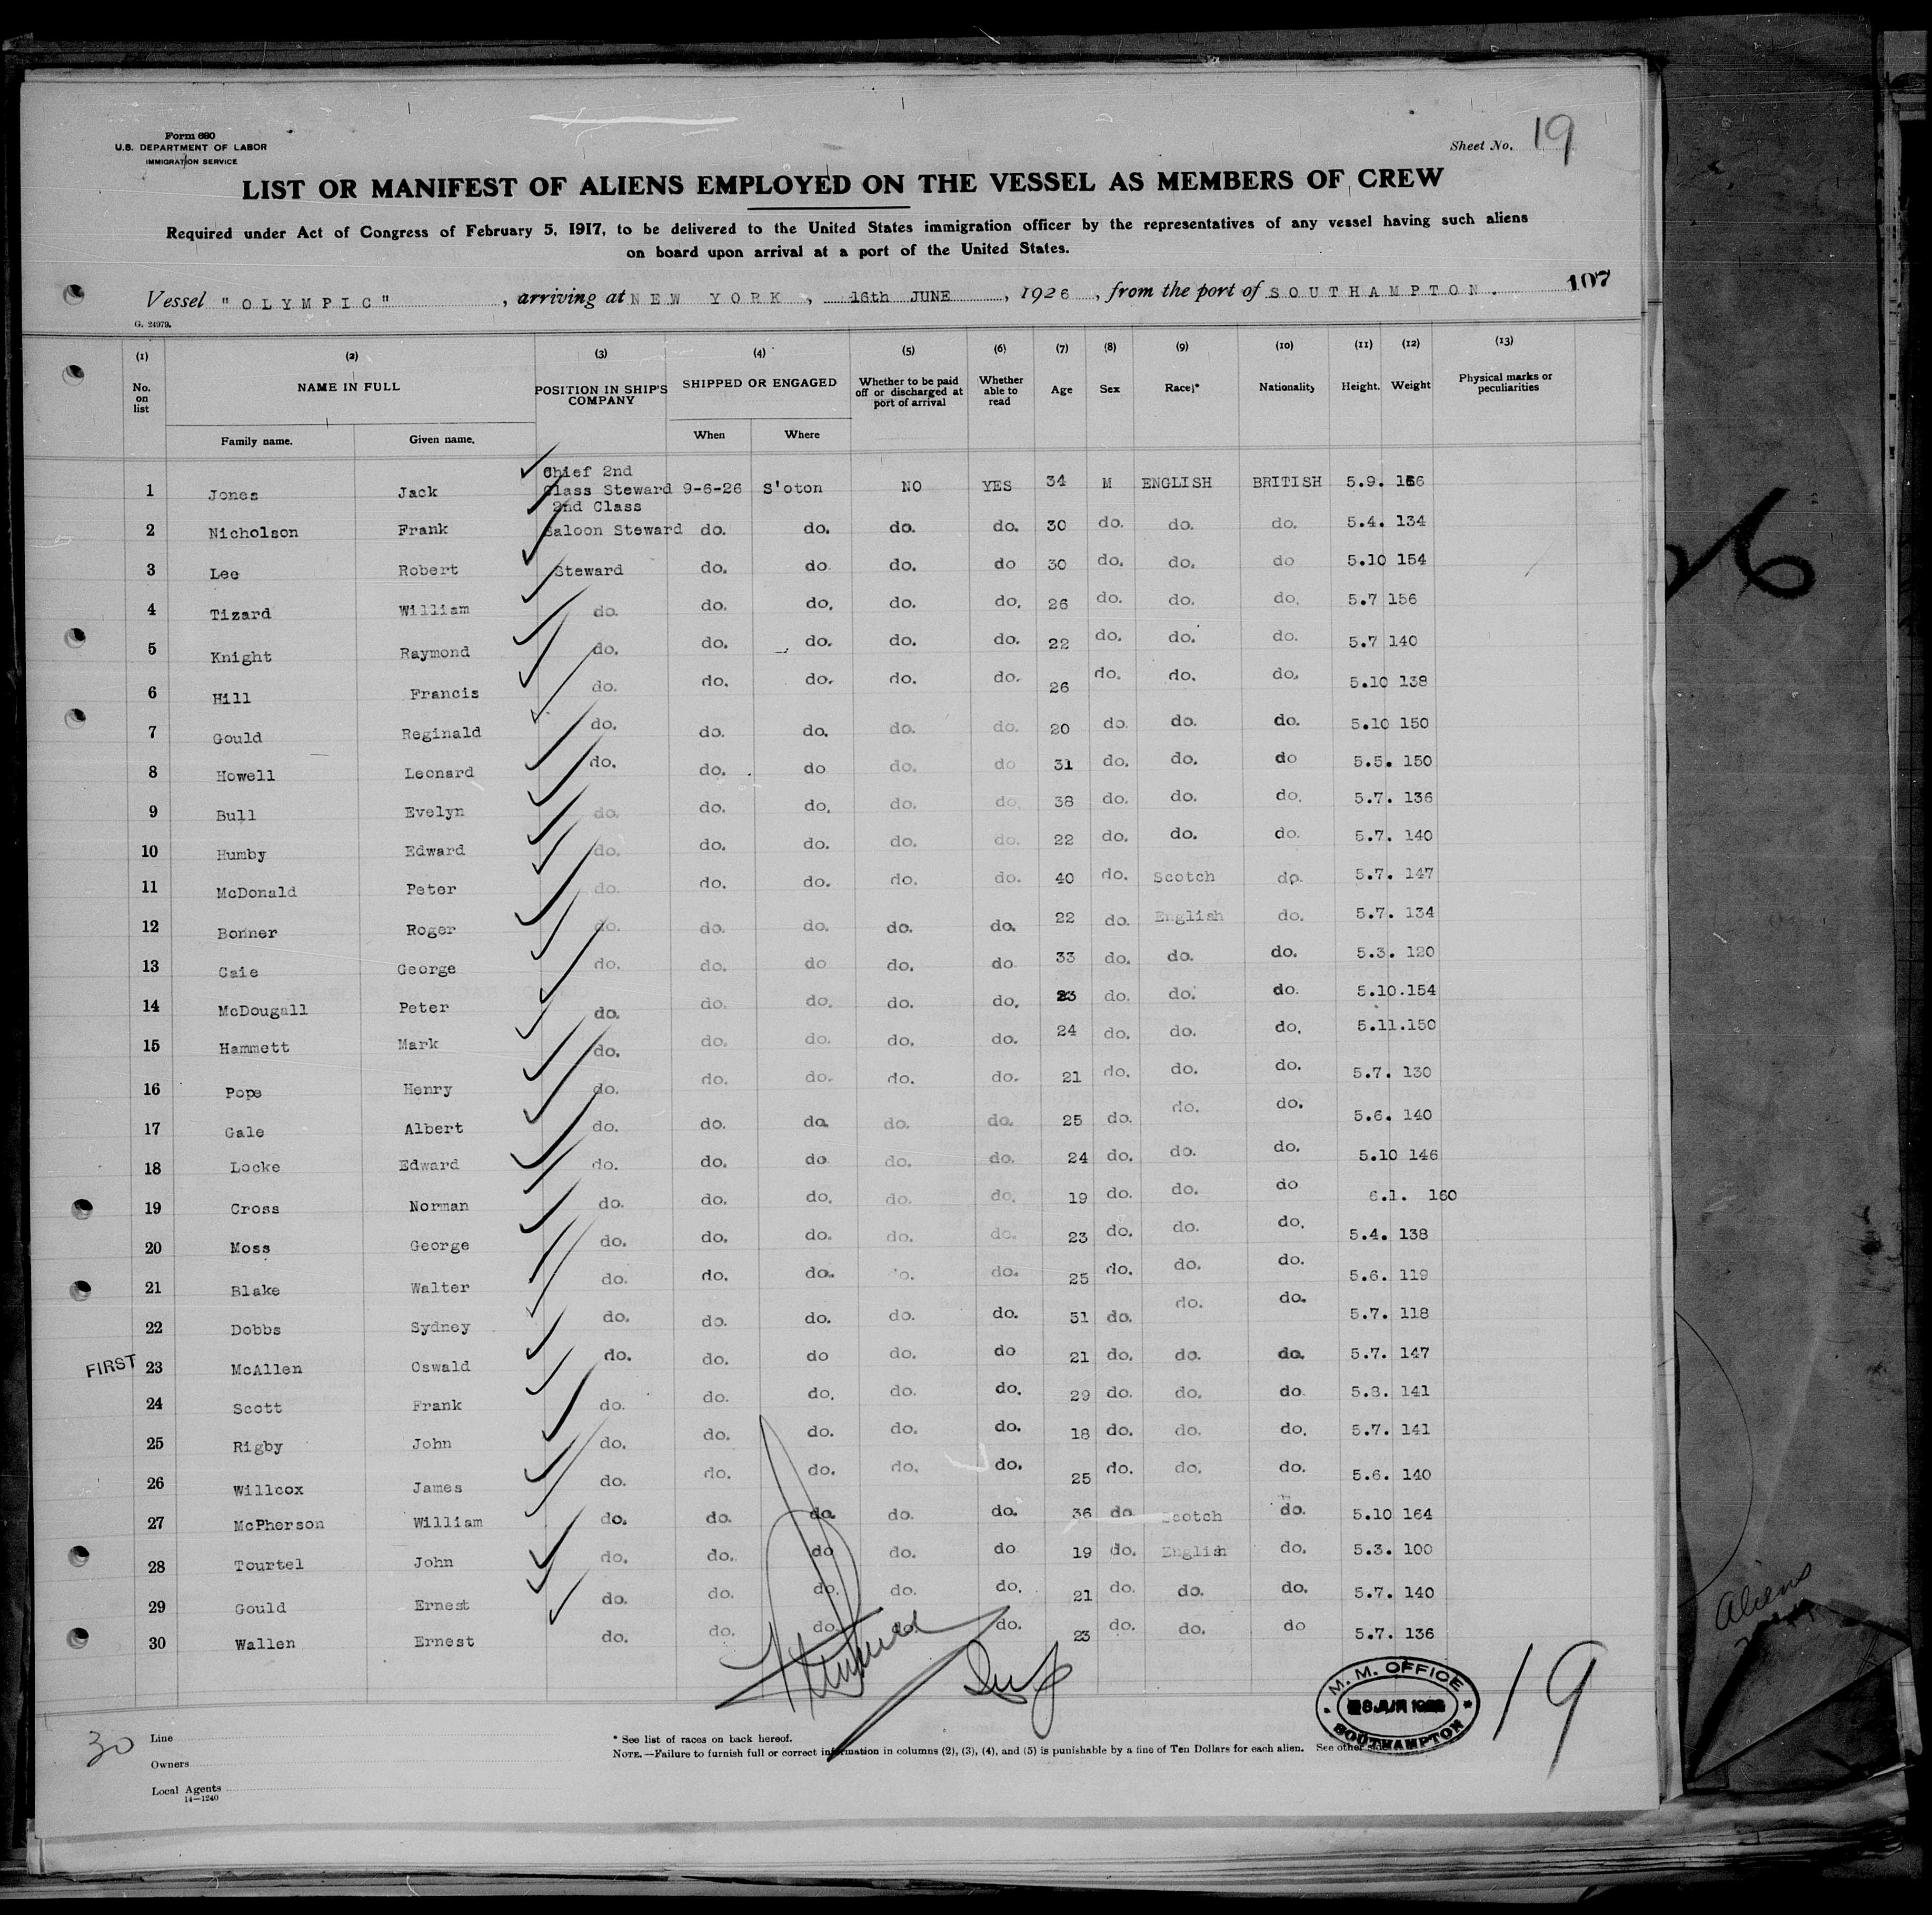 Form 680
U.S. DEPARTMENT OF LABOR
IMMIGRATION SERVICE
Sheet No. 19
LIST OR MANIFEST OF ALIENS EMPLOYED ON THE VESSEL AS MEMBERS OF CREW
Required under Act of Congress of February 5, 1917, to be delivered to the United States immigration officer by the representatives of any vessel having such aliens
on board upon arrival at a port of the United States.
107
Vessel "OLYMPIC", arriving at NEW YORK, 16th JUNE, 1926, from the port of SOUTHAMPTON.
G. 24979.
(1) (2) (3) (4) (5) (6) (7) (8) (9) (10) (11) (12) (13)
No. on list NAME IN FULL POSITION IN SHIP'S COMPANY SHIPPED OR ENGAGED Whether to be paid off or discharged at port of arrival Whether able to read Age Sex Race* Nationality Height. Weight Physical marks or peculiarities
Family name. Given name. When Where
1 Jones Jack Chief 2nd Class Steward 9-6-26 S'oton NO YES 34 M ENGLISH BRITISH 5.9. 166
2 Nicholson Frank 2nd Class Saloon Steward do. do. do. do. 30 do. do. do. 5.4. 134
3 Lee Robert Steward do. do do. do 30 do. do. do 5.10 154
4 Tizard William do. do. do. do. do. 26 do. do. do. 5.7 156
5 Knight Raymond do. do. do. do. do. 22 do. do. do. 5.7 140
6 Hill Francis do. do. do. do. do. 26 do. do. do. 5.10 138
7 Gould Reginald do. do. do. do. do. 20 do. do. do. 5.10 150
8 Howell Leonard do. do. do do. do 31 do. do. do 5.5. 150
9 Bull Evelyn do. do. do. do. do. 38 do. do. do. 5.7. 136
10 Humby Edward do. do. do. do. do. 22 do. do. do. 5.7. 140
11 McDonald Peter do. do. do. do. do. 40 do. Scotch do. 5.7. 147
12 Bonner Roger do. do. do. do. do. 22 do. English do. 5.7. 134
13 Caie George do. do. do do. do 33 do. do. do. 5.3. 120
14 McDougall Peter do. do. do. do. do. 23 do. do. do. 5.10.154
15 Hammett Mark do. do. do. do. do. 24 do. do. do. 5.11.150
16 Pope Henry do. do. do. do. do. 21 do. do. do. 5.7. 130
17 Gale Albert do. do. do. do. do. 25 do. do. do. 5.6. 140
18 Locke Edward do. do. do do. do. 24 do. do. do. 5.10 146
19 Cross Norman do. do. do. do. do. 19 do. do. do 6.1. 160
20 Moss George do. do. do. do. do. 23 do. do. do. 5.4. 138
21 Blake Walter do. do. do. do. do. 25 do. do. do. 5.6. 119
22 Dobbs Sydney do. do. do. do. do. 31 do. do. do. 5.7. 118
FIRST 23 McAllen Oswald do. do. do do. do 21 do. do. do. 5.7. 147
24 Scott Frank do. do. do. do. do. 29 do. do. do 5.8. 141
25 Rigby John do. do. do. do. do. 18 do. do. do. 5.7. 141
26 Willcox James do. do. do. do. do. 25 do. do. do. 5.6. 140
27 McPherson William do. do. do. do. do. 36 do Scotch do. 5.10 164
28 Tourtel John do. do. do do. do 19 do. English do. 5.3. 100
29 Gould Ernest do. do. do. do. do. 21 do. do. do. 5.7. 140
30 Wallen Ernest do. do. do. do. do. 23 do. do. do 5.7. 136
M. M. OFFICE
SOUTHAMPTON
19
30
Line
Owners
Local Agents
14—1240
* See list of races on back hereof.
NOTE.—Failure to furnish full or correct information in columns (2), (3), (4), and (5) is punishable by a fine of Ten Dollars for each alien. See other
26
Aliens